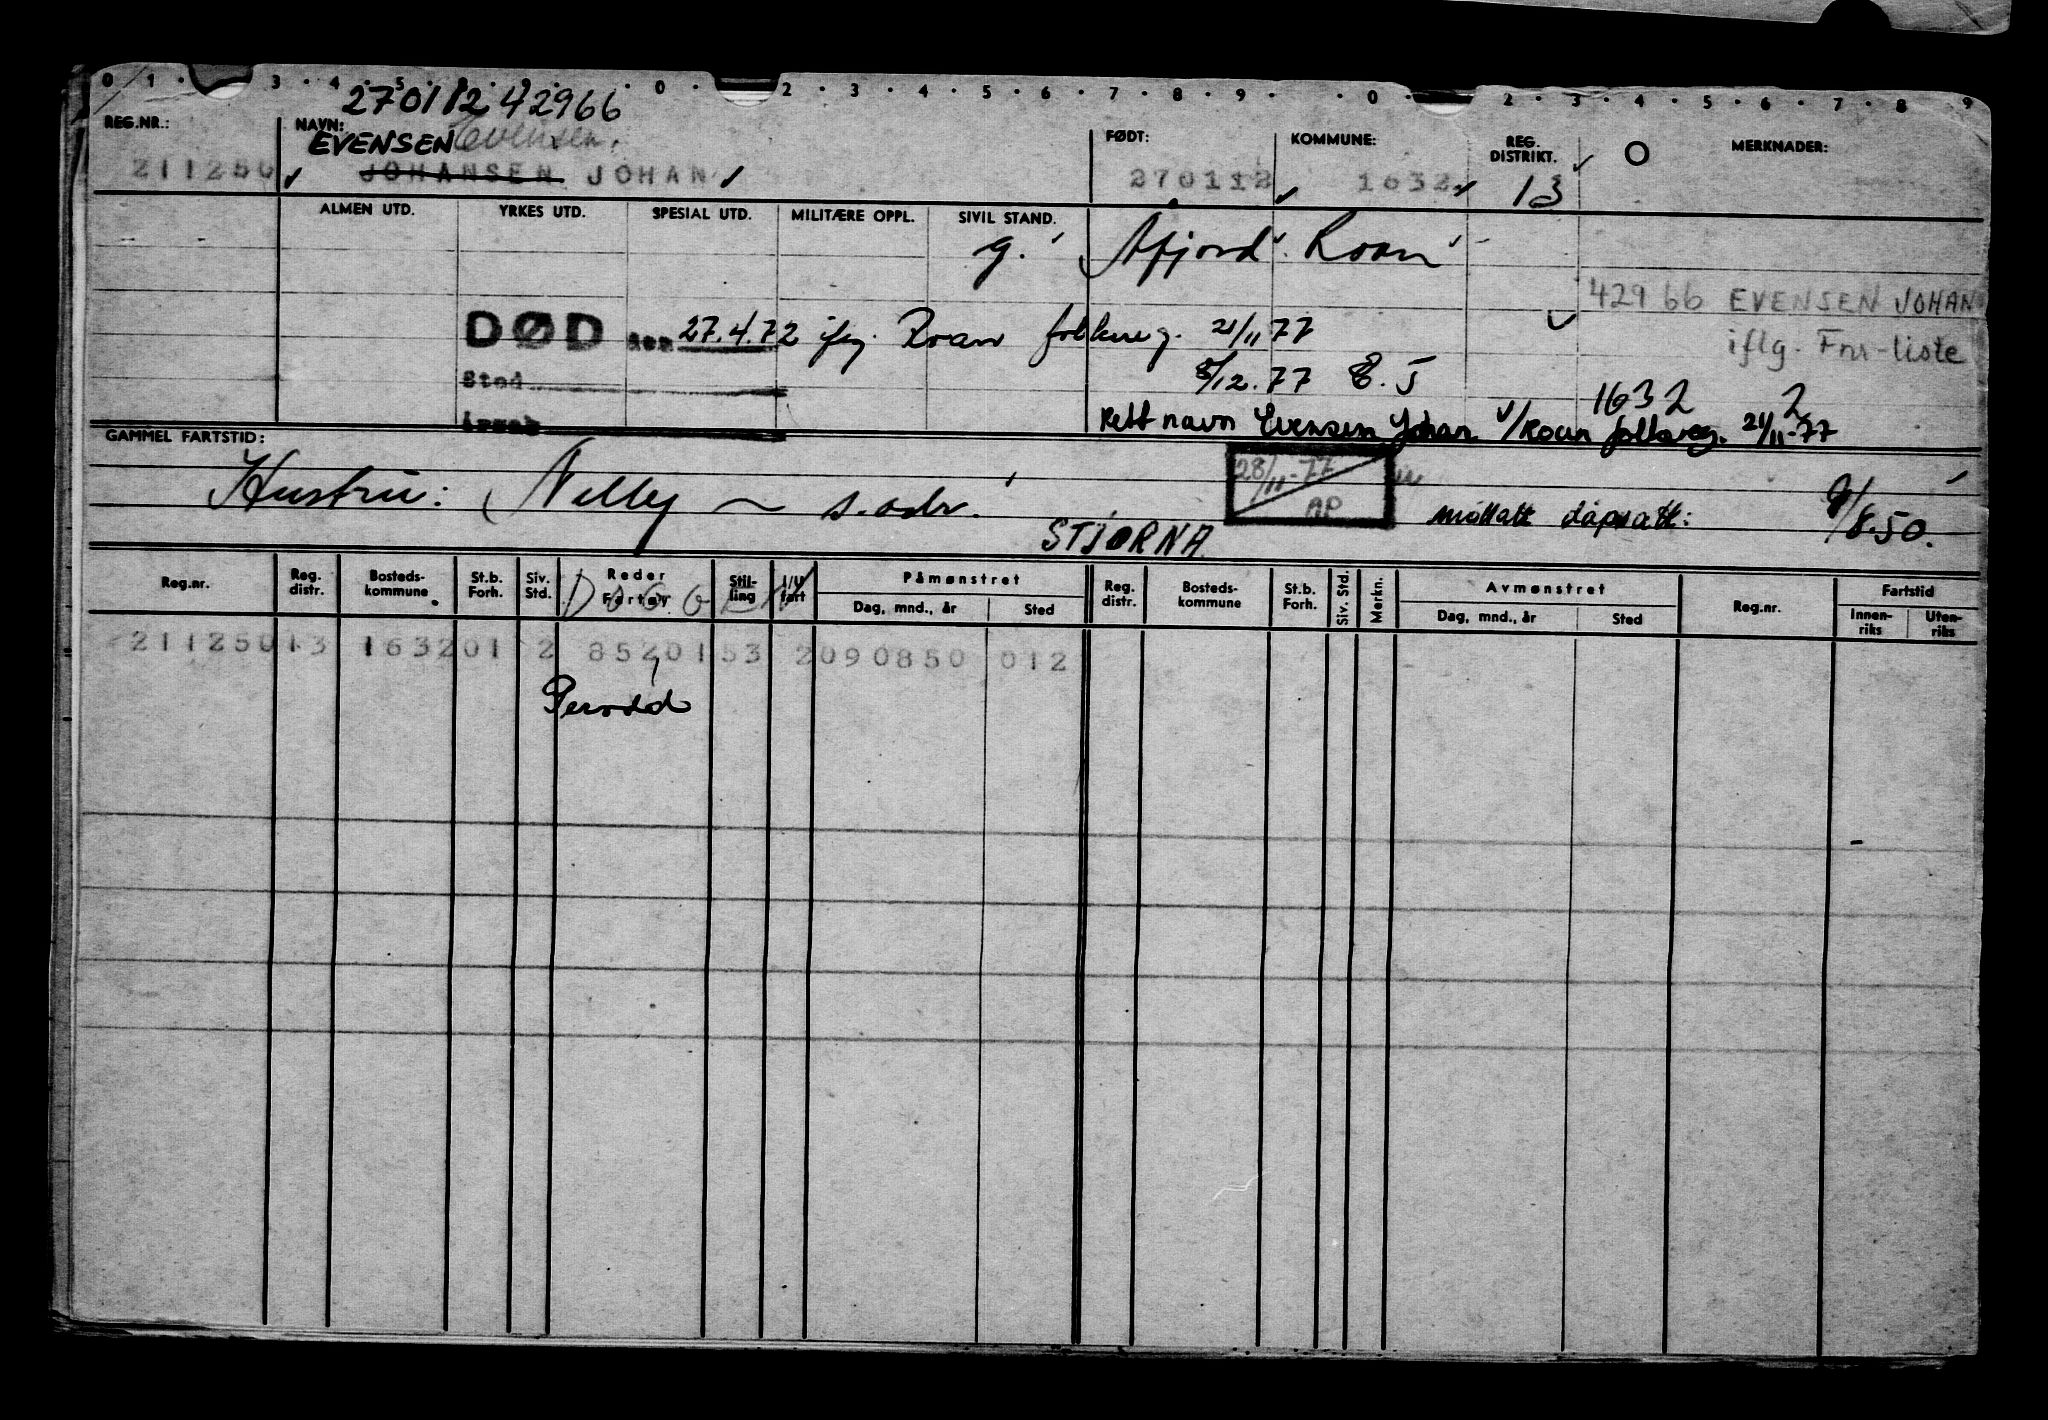 0 1 3 4 5 0 2 3 4 5 6 7 8 9 0 2 3 4 5 6 7 8 9
270112 42966
REG.NR.: NAVN: FØDT: KOMMUNE: REG. DISTRIKT. O MERKNADER:
EVENSEN Evensen.
211250 JOHANSEN JOHAN 270112 1632 13
ALMEN UTD. YRKES UTD. SPESIAL UTD. MILITÆRE OPPL. SIVIL STAND.
g. Åfjord Roan
42966 EVENSEN JOHAN
DØD den 27.4.72 ifg. Roan folkereg. 21/11 77
iflg. Fnr-liste
Sted 8/12.77 E.J
1632 2
Årsak Rett navn Evensen Johan /Roan folkereg. 21/11-77
GAMMEL FARTSTID:
28/11-77
Hustru: Nelly ~ s. adr.
AP
mottatt dåpsatt: 9/8.50.
STJØRNA
Reg.nr. Reg. distr. Bosteds- kommune St.b. Forh. Siv. Std. Reder Fartøy Stil- ling I/U fart Påmønstret Dag, mnd., år Sted Reg. distr. Bosteds- kommune St.b. Forh. Siv. Std. Merkn. Avmønstret Dag, mnd., år Sted Reg.nr. Fartstid Innen- riks Uten- riks
211250 13 1632 01 2 85201 53 2 090850 012